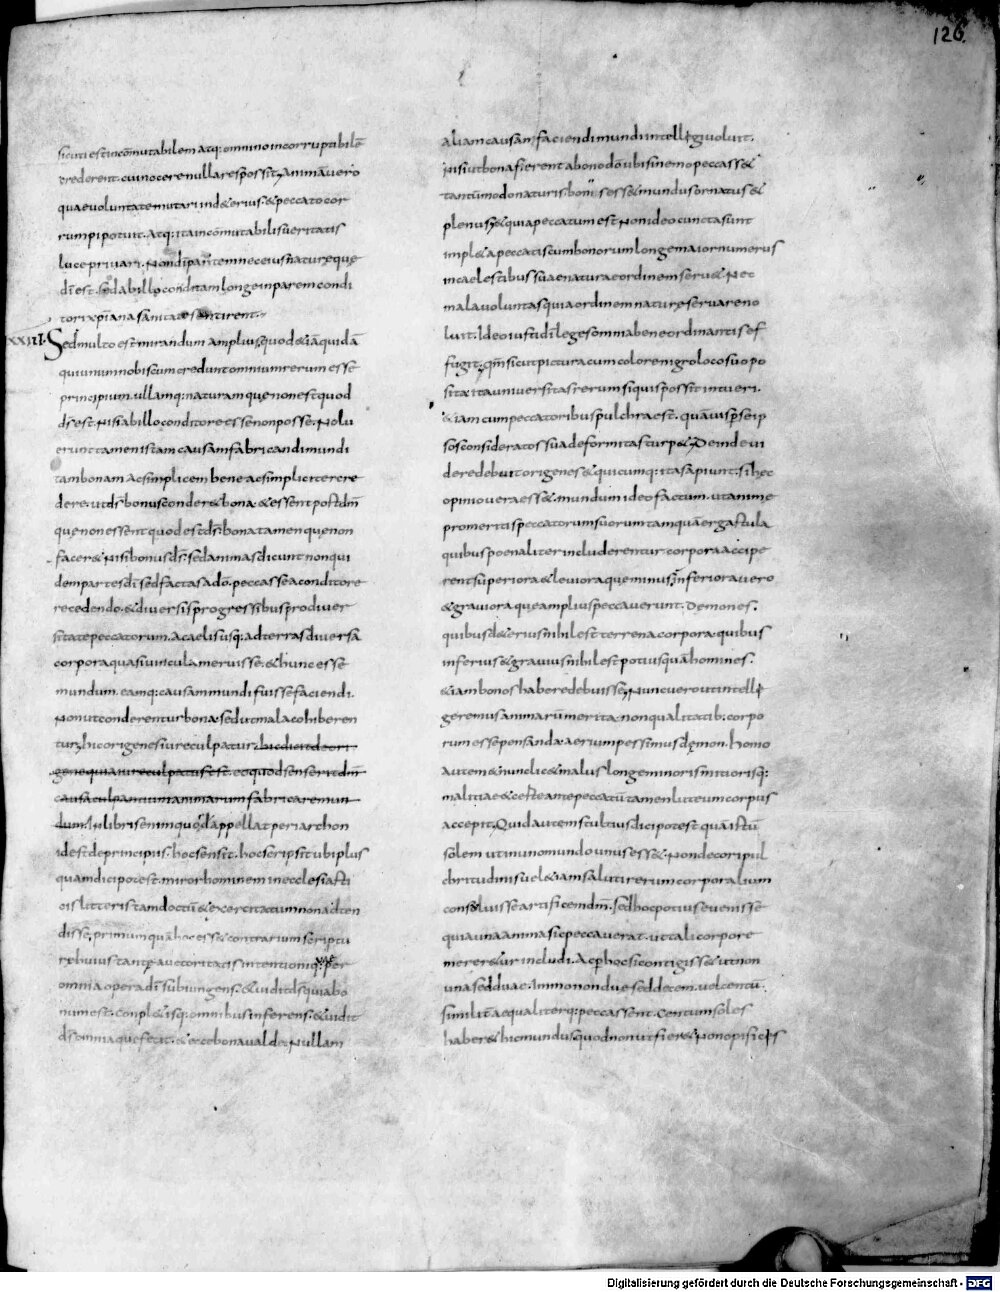 126
sicuti est incōmutabilem atq; omnino incorruptibilē
crederent. cui nocere nulla res possit; Animā uero
quae uoluntate mutari in d&erius. & peccato cor
rumpi potuit. Atq; ita incōmutabilis ueritatis
luce priuari. Non dī partem nec eius naturę quę
dī est. sed ab illo conditam longe inparem condi
tori xp̄iana sanitate sentirent.
XXIII. Sed multo est mirandum amplius quod &iā quidā
qui unum nobiscum credunt omnium rerum esse
principium. ullamq; naturam que non est quod
dſ est. Nisi ab illo conditore esse non posse. Nolu
erunt tamen istam causam fabricandi mundi
tam bonam ac simplicem bene ac simpliciter cre
dere. ut dſ bonus conder& bona. & essent post dm̄
que non essent quod est dſ. bona tamen que non
facer& Nisi bonus dſ. sed animas dicunt non qui
dem partes dī sed factas a dō. peccasse a conditore
recedendo. & diuersis progressibus pro diuer
sitate peccatorum. a caelis usq; ad terras diuersa
corpora quasi uincula meruisse. & hunc esse
mundum. eamq; causam mundi fuisse faciendi.
Non ut conderentur bona. sed ut mala cohiberen
tur. hic origenes iure culpatur. hic dicit de ori
gene quia iure culpatus est. et quod senserit dm̄
causa culpantium animarum fabricare mun
dum. In libris enim quos appellat periarchon
id est de principiis. hoc sensit. hoc scripsit. ubi plus
quam dici potest. miror hominem in ecclesiasti
cis litteris tam doctū & exercitatum non adten
disse. primum quā hoc ess& contrarium scriptu
rę huius tantę auctoritatis intentioni. quę per
omnia opera dī subiungens. & uidit dſ quia bo
num est. conpl&isq; omnibus inferens. & uidit
dſ omnia que fecit. & ecce bona ualde. Nullam
aliam causam faciendi mundi intellegi uoluit.
Nisi ut bona fierent a bono dō. ubi si nemo peccass&
tantummodo naturis bonis ess& mundus ornatus &
plenus; & quia peccatum est Non ideo cuncta sunt
impl&a peccatis cum bonorum longe maior numerus
in caelestibus suae naturae ordinem seru&. Nec
mala uoluntas quia ordinem naturę seruare no
luit. Ideo iusti dī leges omnia bene ordinantis ef
fugit. qm̄ sicut pictura cum colore nigro loco suo po
sita. ita uniuersitas rerum si quis possit intueri.
&iam cum peccatoribus pulchra est. quāuis p se ip
sos consideratos sua deformitas turp&; Deinde ui
dere debuit origenes & quicumq; ita sapiunt. si hęc
opinio uera ess&. mundum ideo factum. ut anime
pro meritis peccatorum suorum tamquā ergastula
quibus poenaliter includerentur. corpora accipe
rent. superiora & leuiora que minus. inferiora uero
& grauiora que amplius peccauerunt. Demones.
quibus d&erius nihil est terrena corpora. quibus
inferius & grauius nihil est potius quā homines.
&iam bonos habere debuisse; Nunc uero ut intelle
geremus animarū merita. non qualitatib; corpo
rum esse pensanda. aerium pessimus dęmon. homo
autem & nunc lic& malus longe minoris mitiorisq;
malitiae & certe ante peccatū tamen luteum corpus
accepit; Quid autem stultius dici potest quā istū
solem ut in uno mundo unus ess&. Non decori pul
chritudinis uel &iam saluti rerum corporalium
consuluisse artificem dm̄. sed hoc potius euenisse
quia una anima sic peccauerat. ut tali corpore
merer&ur includi. Ac p hoc si contigiss& ut non
una sed duae. Immo non due sed decem. uel centū.
similit aequaliterq; peccassent. Centum soles
haber& hic mundus. quod non ut fier& Non opificis
Digitalisierung gefördert durch die Deutsche Forschungsgemeinschaft - DFG